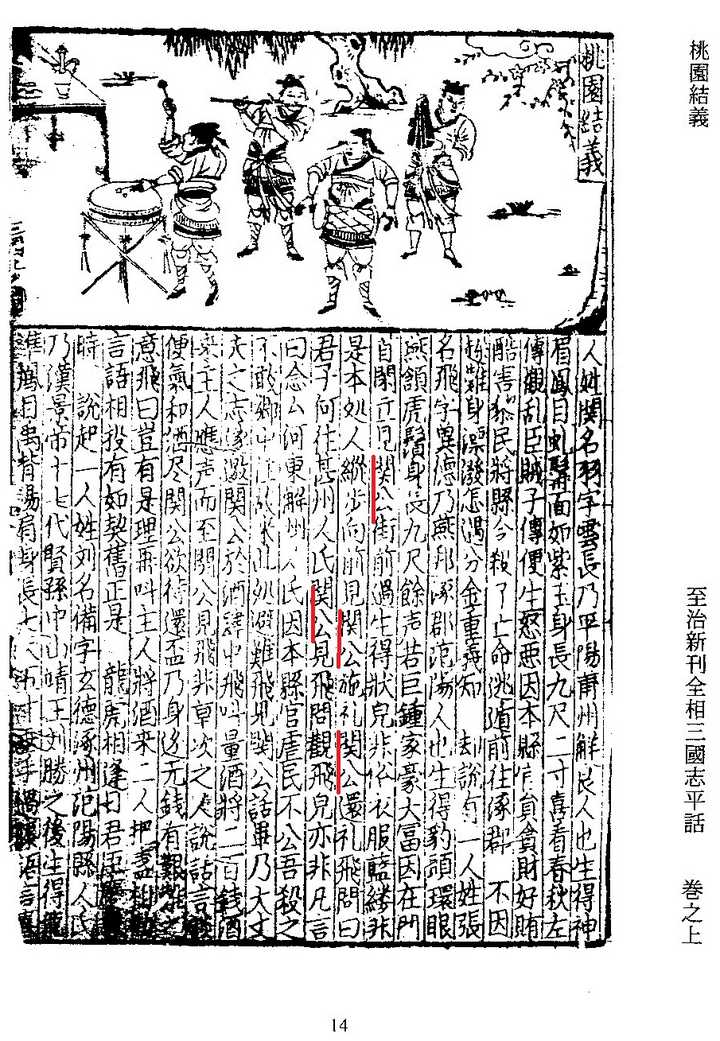 桃園結義
至治新刊全相三國志平話 卷之上
桃園結義
人姓関名羽字雲長乃平陽蒲州解良人也生得神
眉鳳目虬髯面如紫玉身長九尺二寸喜看春秋左
傳觀乱臣賊子傳便生怒悪因本縣官員貪財好賄
酷害黎民將縣令殺了亡命逃遁前往涿郡 不因
趂難身漂潑怎遇分金重義知 却說有一人姓張
名飛字翼德乃燕邦涿郡范陽人也生得豹頭環眼
燕頷虎鬚身長九尺餘声若巨鍾家豪大冨因在門
首閑立見関公街前過生得狀皃非俗衣服藍縷非
是本処人縱步向前見関公施礼関公還礼飛問曰
君子何往甚州人氏関公見飛問觀飛皃亦非凡言
曰念某河東解州人氏因本縣官虐民不公吾殺之
不敢鄉中住故來此処避難飛見関公話畢乃大丈
夫之志遂邀関公於酒肆中飛叫量酒將二百錢酒
來主人應声而至関公見飛非草次之人說話言談
便氣和酒尽関公欲待還盃乃身边无錢有艱難之
意飛曰豈有是理再叫主人將酒來二人把盞相勸
言語相投有如契舊正是 龍虎相逢日君臣
時 說起一人姓刘名備字玄德涿州范陽縣人氏
乃漢景帝十七代賢孫中山靖王刘勝之後生得龍
準鳳目禹背湯肩身長七尺五寸垂手過膝語言喜
14